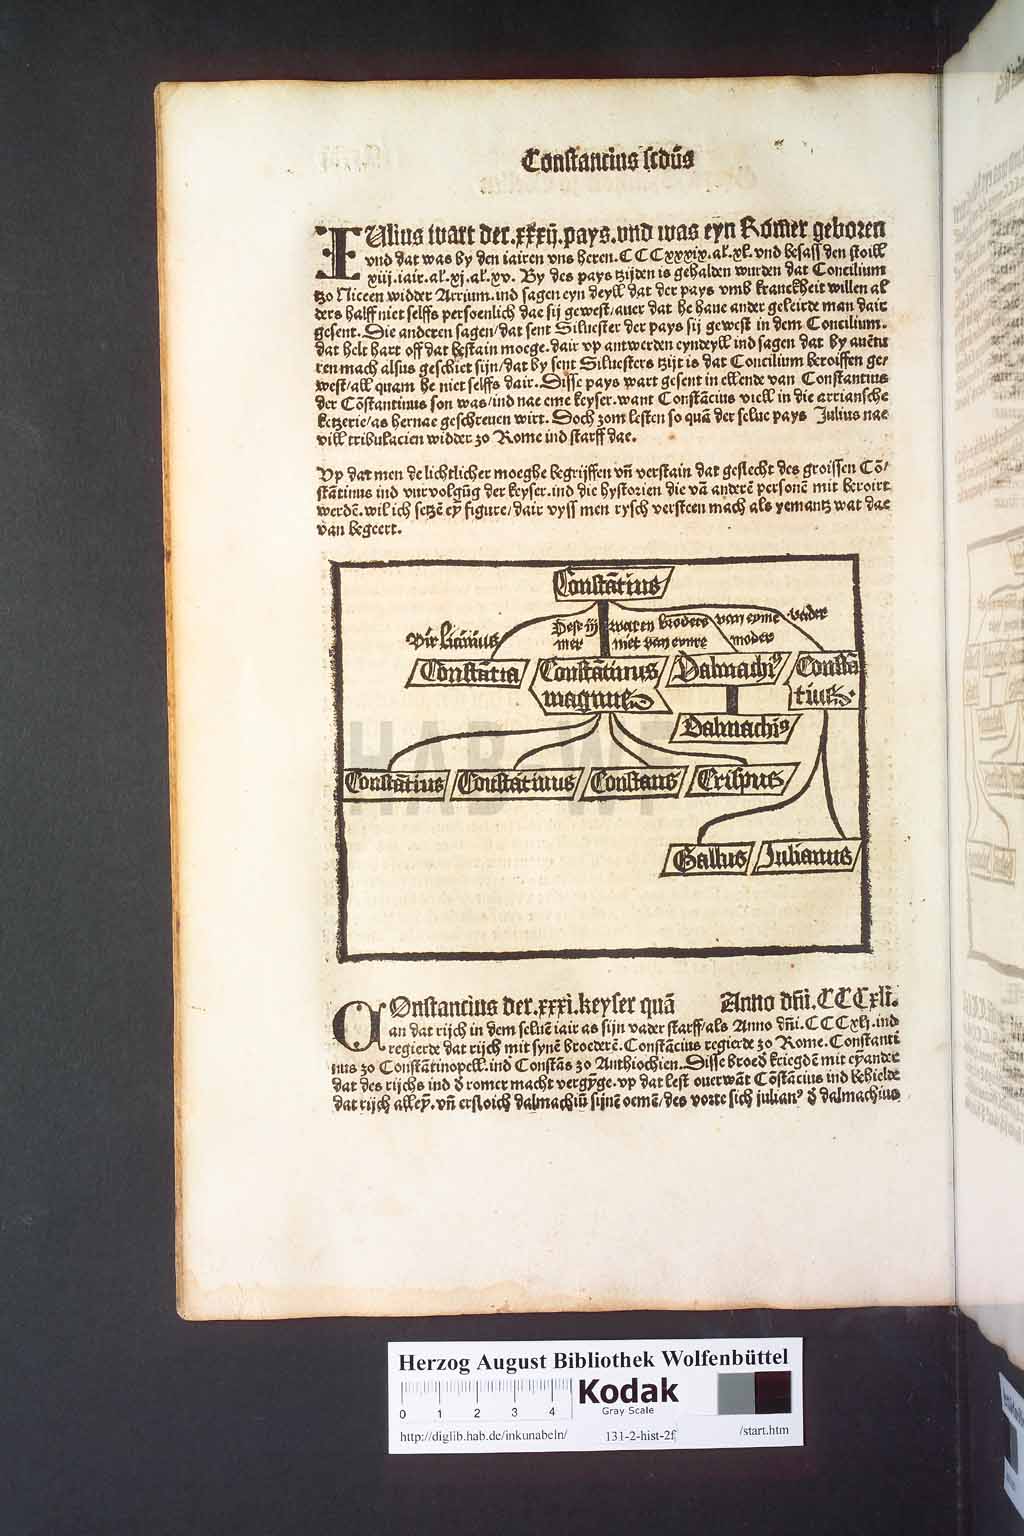 Constancius scdūs
IUlius wart der.xxxij.pays.vnd was eyn Romer geboren
vnd dat was by den iairen vns heren.CCCxxxix.al.xl.vnd besass den stoill
xiii.iair.al.xj.al.xv. By des pays tzijden is gehalden wurden dat Concilium
tzo Niceen widder Arrium.ind sagen eyn deyll dat der pays vmb kranckheit willen al
ders halff niet selffs persoenlich dae sij gewest/auer dat he haue ander geleirde man dair
gesent. Die anderen sagen/dat sent Siluester der pays sij gewest in dem Concilium.
dat helt hart off dat bestain moege.dair vp antwerden eyndeyll ind sagen dat by auētu
ren mach alsus geschiet sijn/dat by sent Siluesters tzijt is dat Concilium beroiffen ge/
west/all quam he niet selffs dair. Disse pays wart gesent in ellende van Constantius
der Cōstantinus son was/ind nae eme keyser.want Constācius viell in die arriansche
ketzerie/as hernae geschreuen wirt. Doch zom lesten so quā der selue pays Julius nae
vill tribulacien widder zo Rome ind starff dae.
Vp dat men de lichtlicher moeghe begrijffen vñ verstain dat geslecht des groissen Cō/
stātinus ind vurvolgūg der keyser.ind die hystorien die vā anderē personē mit beroirt
werdē.wil ich setzē eȳ figure/dair vyss men rysch versteen mach als yemantz wat dae
van begeert.
Constātius
Dese iij waren broders van eyme vader
mer niet van eynre moder
Vir Licinius
Constātia Constātinus Dalmachiꝰ Constā
magnus tius
Dalmachiꝰ
Constātius Constātinus Constans Crispus
Gallus Julianus
COnstancius der.xxxi.keyser quā Anno dñi.CCCxlI.
an dat rijch in dem seluē iair as sijn vader starff/als Anno dñi.CCCxlj.ind
regierde dat rijch mit synē broederē.Constācius regierde zo Rome. Constanti
nus zo Constātinopell.ind Constās zo Anthiochien. Disse broed̄ kriegdē mit eȳander
dat des rijchs ind d̄ romer macht vergȳge.vp dat lest ouerwāt Cōstācius ind behielde
dat rijch alleȳ.vñ ersloich dalmachiū sijnē oemē/des vorte sich julianꝰ d̄ dalmachius
Herzog August Bibliothek Wolfenbüttel
0 1 2 3 4
Kodak
Gray Scale
http://diglib.hab.de/inkunabeln/ 131-2-hist-2f /start.htm